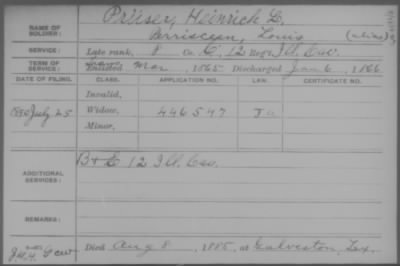 NAME OF SOLDIER: Prüser, Heinrich L.
Louis (alias)
SERVICE: Late rank, 8 Co. C, 12 Reg't Ill. Cav.
TERM OF SERVICE: Enlisted Mar , 1865 Discharged Jun 6 , 1866
DATE OF FILING. CLASS. APPLICATION NO. LAW. CERTIFICATE NO.
Invalid,
1890 July 25 Widow, 446547
Minor,
ADDITIONAL SERVICES: B & E 12 Ill. Cav.
REMARKS:
Died Aug 8 , 1885, at Galveston, Tex.